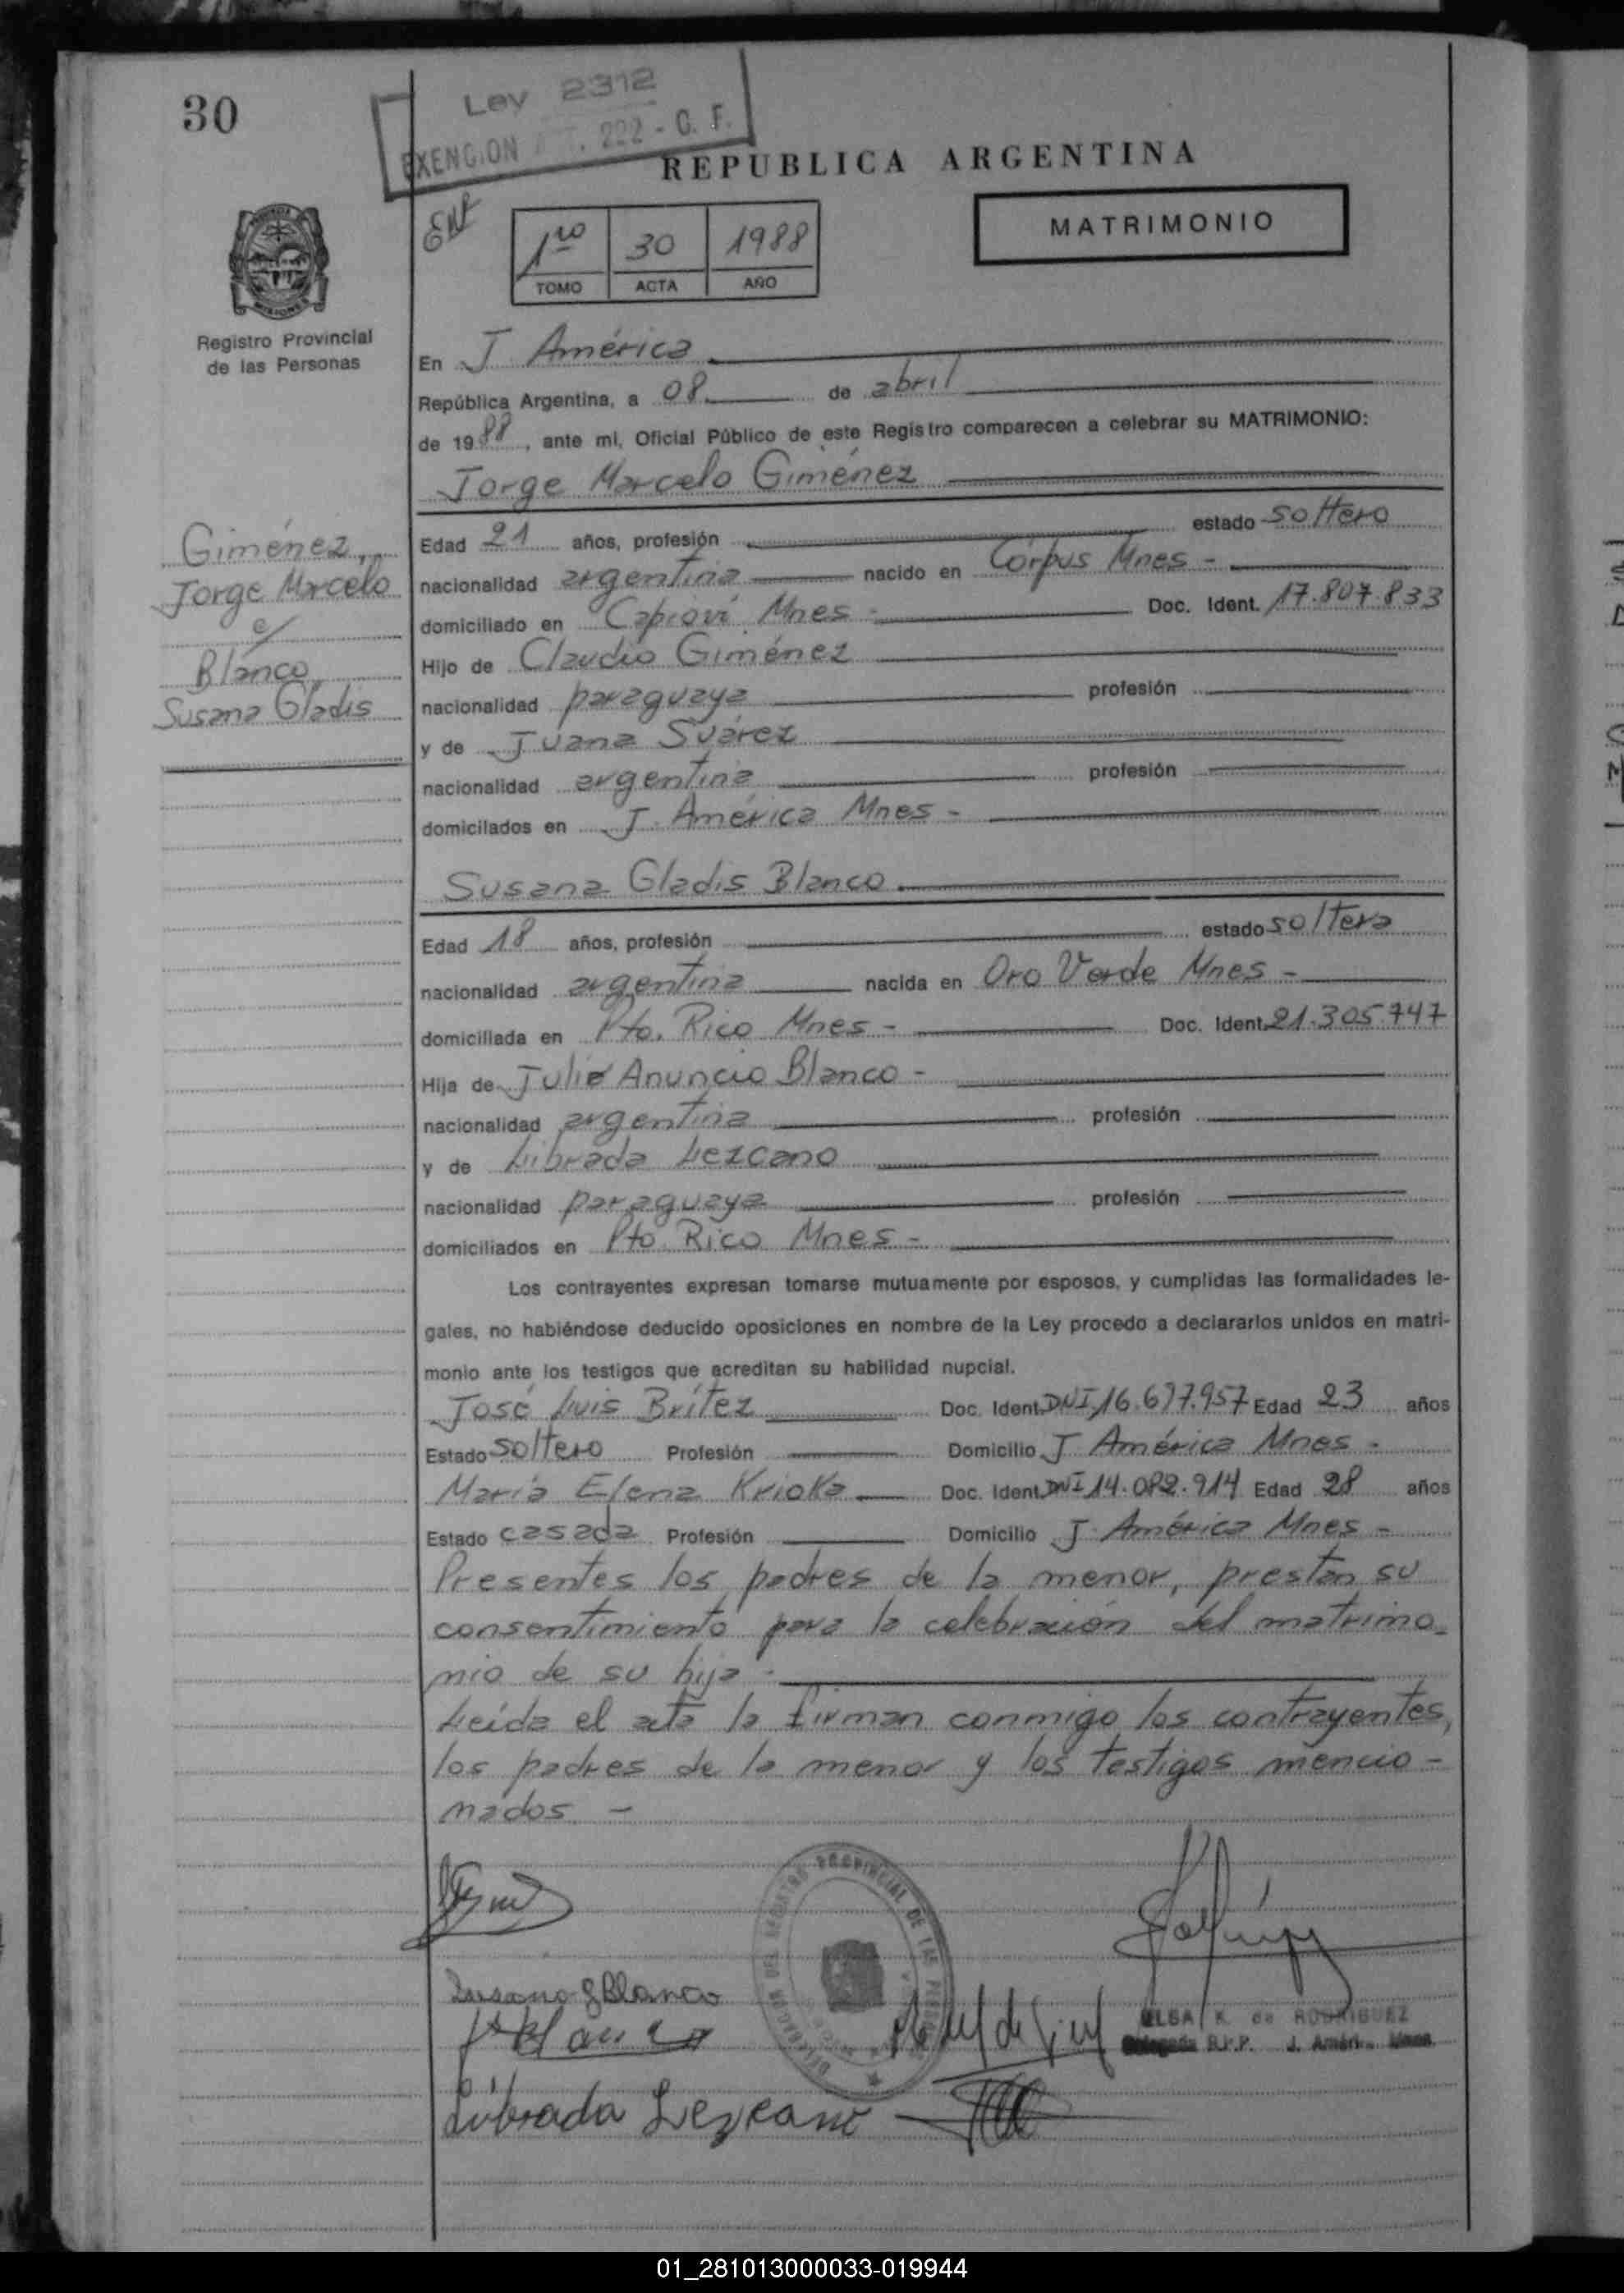 30
Ley 2312
EXENCION . 222 - C. F.
REPUBLICA ARGENTINA
MATRIMONIO
1ro 30 1988
TOMO ACTA AÑO
Registro Provincial
de las Personas
En J. América
República Argentina, a 08 de abril
de 1988, ante mi, Oficial Público de este Registro comparecen a celebrar su MATRIMONIO:
Jorge Marcelo Giménez
Giménez,
Jorge Marcelo
c/
Blanco
Susana Gladis
Edad 21 años, profesión estado soltero
nacionalidad argentina nacido en Corpus Mnes -
domiciliado en Capioví Mnes - Doc. Ident. 17.807.833
Hijo de Claudio Giménez
nacionalidad paraguaya profesión
y de Juana Suárez
nacionalidad argentina profesión
domicilados en J. América Mnes -
Susana Gladis Blanco
Edad 18 años, profesión estado soltera
nacionalidad argentina nacida en Oro Verde Mnes -
domiciliada en Pto. Rico Mnes - Doc. Ident. 21.305.747
Hija de Julio Anuncio Blanco -
nacionalidad argentina profesión
y de Librada Lezcano
nacionalidad paraguaya profesión
domiciliados en Pto. Rico Mnes -
Los contrayentes expresan tomarse mutuamente por esposos, y cumplidas las formalidades le-
gales, no habiéndose deducido oposiciones en nombre de la Ley procedo a declararlos unidos en matri-
monio ante los testigos que acreditan su habilidad nupcial.
José Luis Brítez Doc. Ident. DNI 16.677.957 Edad 23 años
Estado soltero Profesión Domicilio J. América Mnes -
María Elena Krioka Doc. Ident. DNI 14.082.914 Edad 28 años
Estado casada Profesión Domicilio J. América Mnes -
Presentes los padres de la menor, prestan su
consentimiento para la celebración del matrimo-
nio de su hija -
Leída el acta la firman conmigo los contrayentes,
los padres de la menor y los testigos mencio-
nados -
DELEGACION DEL REGISTRO PROVINCIAL DE LAS PERSONAS
Susana G Blanco
ELSA K. de RODRIGUEZ
Delegada R.P.P. J. Améri. Mnes.
Librada Lezcano
01_281013000033-019944